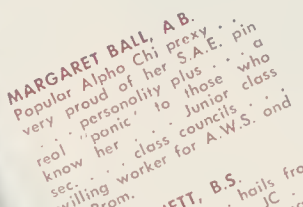 MARGARET BALL, A.B.
Popular Alpho Chi prexy . .
very proud of her S.A.E. pin
. . . personality plus . . . a
real "panic" to those who
know her . . . Junior class
sec. . . . class councils . . .
willing worker for A.W.S. and
Prom.
ETT, B.S.
hails fro
JC